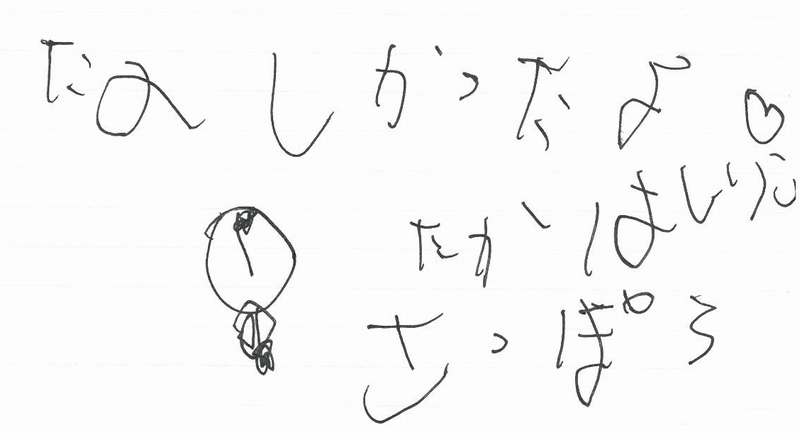 たのしかったよ♡
たかはし
さっぽろ